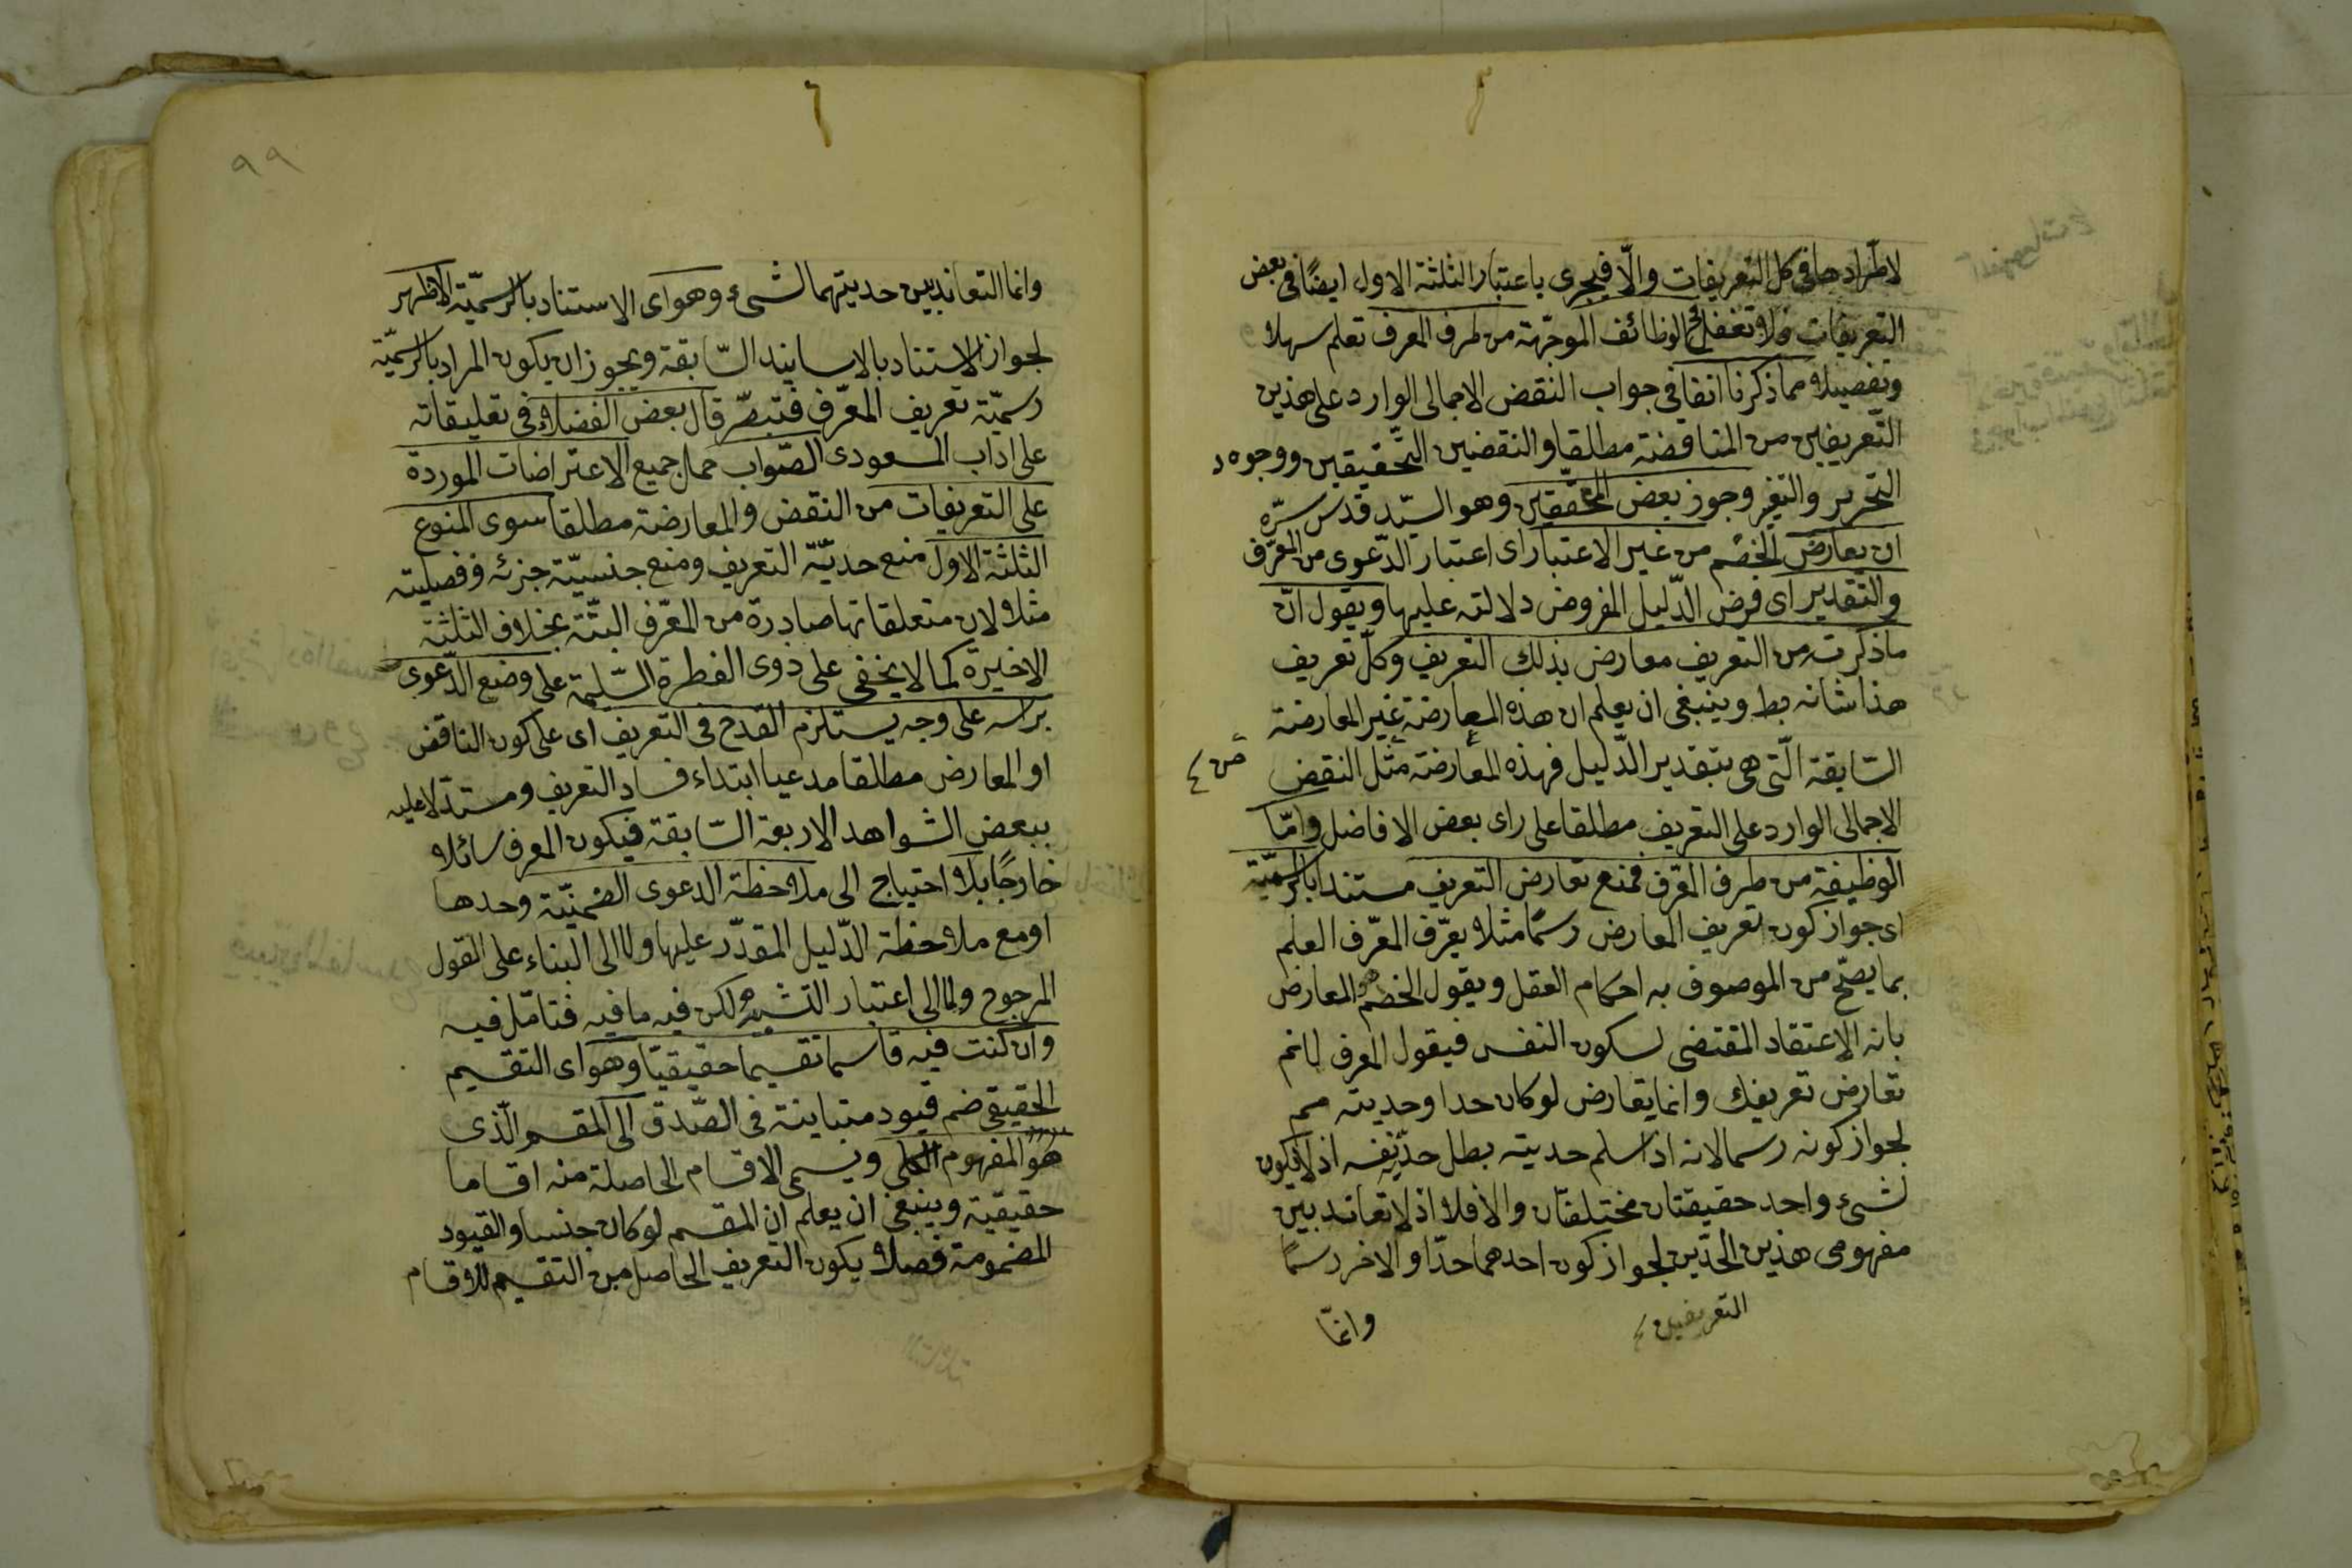 لاطرادها فى كل التعريفات والّا فيجرى باعتبار الثلثة الاول ايضًا فى بعض
التعريفات فلا تغفل الوظائف الموجّهة من طرف المعرف تعلم سهلا
وتفصيلا مما ذكرنا انفا فى جواب النقض الاجمالى الوارد على هذين
التّعريفين من المناقضة مطلقا والنقضين التّحقيقين ووجوه
التحرير والتغير وجوز بعض المحقّقين وهو السيّد قدس سرّه
ان يعارض الخصم من غير الاعتبار اى اعتبار الدّعوى من المعرّف
والتقدير اى فرض الدّليل المفروض دلالته عليها ويقول انّ
ما ذكرت من التعريف معارض بذلك التعريف وكلّ تعريف
هذا شانه بط وينبغى ان يعلم ان هذه المعارضة غير المعارضة
السّابقة الّتى هى بتقدير الدّليل فهذه المعارضة مثل النقض
الاجمالى الوارد على التعريف مطلقا على راى بعض الافاضل وامّا
الوظيفة من طرف المعّرف فمنع تعارض التعريف مستندا بالرّسميّة
اى جواز كون تعريف المعارض رسمًا مثلا يعرّف المعّرف العلم
بما يصحّ من الموصوف به احكام العقل ويقول الخصم المعارض
بانه الاعتقاد المقتضى لسكون النفس فيقول المعرف لانم
تعارض تعريفك وانما يتعارض لو كان حدا وحديته مم
لجواز كونه رسما لانه اذا سلم حديته بطل حدّ نفسه اذ لا يكون
لشىء واحد حقيقتان مختلفتان والا فلا اذ لا تعاند بين
مفهومى هذين الحدّين لجواز كون احدهما حدّا والاخر رسمًا
التعريفين
وانمّا
٩٩
وانما التعاند بين حديتهما لشىء وهو اى الاستناد بالرسميّة الاظهر
لجواز الاستناد بالاسانيد السّابقة ويجوز ان يكون المراد بالرسميّة
رسميّة تعريف المعّرف فتبصّر قال بعض الفضلاء فى تعليقاته
على اداب المسعودى الصّواب حمل جميع الاعتراضات الموردة
على التعريفات من النقض والمعارضة مطلقا سوى المنوع
الثلثة الاول منع حديّة التعريف ومنع جنسيّة جزئه وفصليته
مثلا لان متعلقاتها صادرة من المعّرف البتّة بخلاف الثلثة
الاخيرة كما لا يخفى على ذوى الفطرة السّليمة على وضع الدّعوى
براسه على وجه يستلزم القدح فى التعريف اى على كون الناقض
او المعارض مطلقا مدعيا ابتداء فساد التعريف ومستدّلا عليه
ببعض الشواهد الاربعة السّابقة فيكون المعرف سائلا
خارجًا بلا احتياج الى ملاحظة الدعوى الضمنيّة وحدها
او مع ملاحظة الدّليل المقدّر عليها ولا الى البناء على القول
المرجوح ولا الى اعتبار التشبيه لكن فيه ما فيه فتامّل فيه
وان كنت فيه قاسما تقسيما حقيقيّا وهو اى التقسيم
الحقيقى ضم قيود متباينة فى الصّدق الى المقسم الّذى
هو المفهوم الكلى ويسمى الاقسام الحاصلة منه اقساما
حقيقية وينبغى ان يعلم ان المقسم لو كان جنسا والقيود
المضمومة فصلا يكون التعريف الحاصل من التقسيم للاقسام